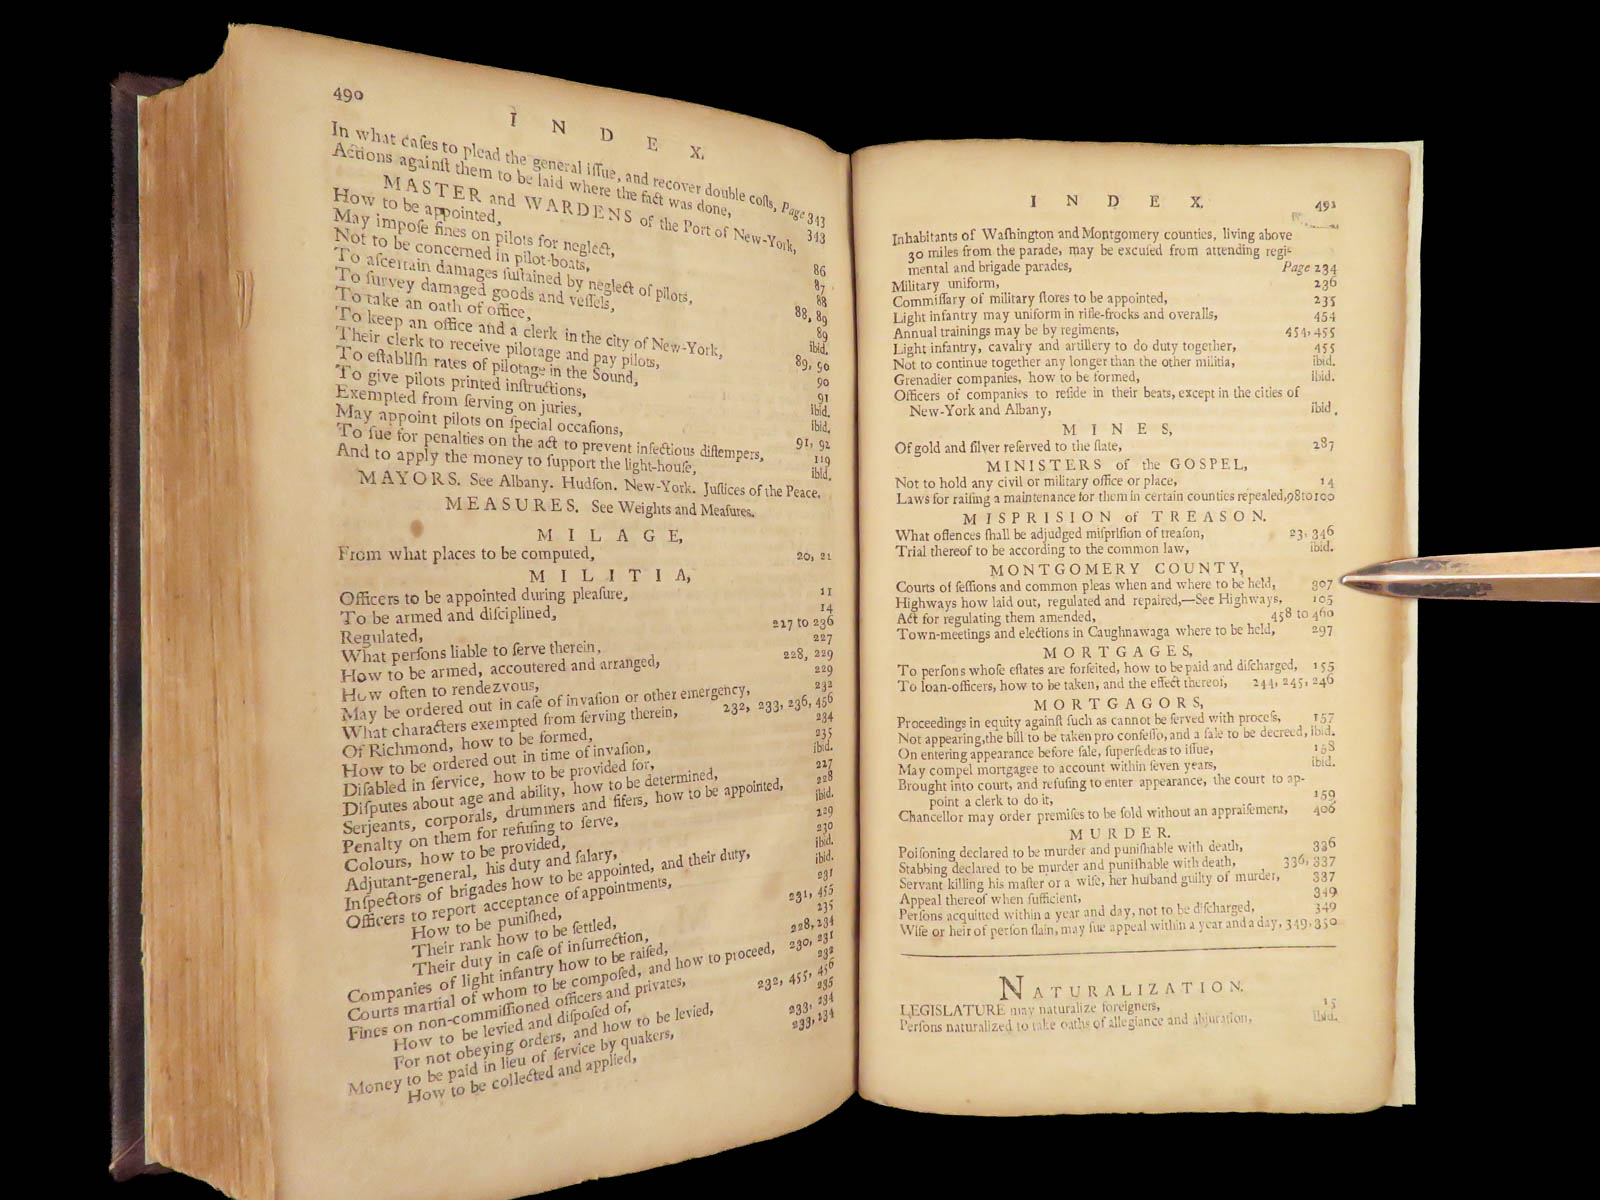 490
I N D E X.
In what caſes to plead the general iſſue, and recover double coſts, Page 343
Actions againſt them to be laid where the fact was done, 343
MASTER and WARDENS of the Port of New-York,
How to be appointed, 86
May impoſe fines on pilots for neglect, 87
Not to be concerned in pilot-boats, 88
To aſcertain damages ſuſtained by neglect of pilots, 88, 89
To ſurvey damaged goods and veſſels, 89
To take an oath of office, ibid.
To keep an office and a clerk in the city of New-York, 89, 90
Their clerk to receive pilotage and pay pilots, 90
To eſtabliſh rates of pilotage in the Sound, 91
To give pilots printed inſtructions, ibid.
Exempted from ſerving on juries, ibid.
May appoint pilots on ſpecial occaſions, 91, 92
To ſue for penalties on the act to prevent infectious diſtempers, 119
And to apply the money to ſupport the light-houſe, ibid.
MAYORS. See Albany. Hudſon. New-York. Juſtices of the Peace.
MEASURES. See Weights and Meaſures.
M I L A G E,
From what places to be computed, 20, 21
M I L I T I A,
Officers to be appointed during pleaſure, 11
To be armed and diſciplined, 14
Regulated, 227 to 236
What perſons liable to ſerve therein, 227
How to be armed, accoutered and arranged, 228, 229
How often to rendezvous, 229
May be ordered out in caſe of invaſion or other emergency, 232
What characters exempted from ſerving therein, 232, 233, 236, 456
Of Richmond, how to be formed, 234
How to be ordered out in time of invaſion, 235
Diſabled in ſervice, how to be provided for, ibid.
Diſputes about age and ability, how to be determined, 227
Serjeants, corporals, drummers and fifers, how to be appointed, 228
Penalty on them for refuſing to ſerve, ibid.
Colours, how to be provided, 229
Adjutant-general, his duty and ſalary, 230
Inſpectors of brigades how to be appointed, and their duty, ibid.
Officers to report acceptance of appointments, ibid.
How to be puniſhed, 231
Their rank how to be ſettled, 231, 455
Their duty in caſe of inſurrection, 235
Companies of light infantry how to be raiſed, 228, 234
Courts martial of whom to be compoſed, and how to proceed, 230, 231
Fines on non-commiſſioned officers and privates, 232
How to be levied and diſpoſed of, 232, 455, 456
For not obeying orders, and how to be levied, 235
Money to be paid in lieu of ſervice by quakers, 233, 234
How to be collected and applied, 233, 234
I N D E X. 491
Inhabitants of Waſhington and Montgomery counties, living above
30 miles from the parade, may be excuſed from attending regi-
mental and brigade parades, Page 234
Military uniform, 236
Commiſſary of military ſtores to be appointed, 235
Light infantry may uniform in rifle-frocks and overalls, 454
Annual trainings may be by regiments, 454, 455
Light infantry, cavalry and artillery to do duty together, 455
Not to continue together any longer than the other militia, ibid.
Grenadier companies, how to be formed, ibid.
Officers of companies to reſide in their beats, except in the cities of
New-York and Albany, ibid.
M I N E S,
Of gold and ſilver reſerved to the ſtate, 287
MINISTERS of the GOSPEL,
Not to hold any civil or military office or place, 14
Laws for raiſing a maintenance for them in certain counties repealed, 98 to 100
MISPRISION of TREASON.
What offences ſhall be adjudged miſpriſion of treaſon, 23, 346
Trial thereof to be according to the common law, ibid.
MONTGOMERY COUNTY,
Courts of ſeſſions and common pleas when and where to be held, 307
Highways how laid out, regulated and repaired,—See Highways, 105
Act for regulating them amended, 458 to 460
Town-meetings and elections in Caughnawaga where to be held, 297
M O R T G A G E S,
To perſons whoſe eſtates are forfeited, how to be paid and diſcharged, 155
To loan-officers, how to be taken, and the effect thereof, 244, 245, 246
M O R T G A G O R S,
Proceedings in equity againſt ſuch as cannot be ſerved with proceſs, 157
Not appearing, the bill to be taken pro confeſſo, and a ſale to be decreed, ibid.
On entering appearance before ſale, ſuperſedeas to iſſue, 158
May compel mortgagee to account within ſeven years, ibid.
Brought into court, and refuſing to enter appearance, the court to ap-
point a clerk to do it, 159
Chancellor may order premiſes to be ſold without an appraiſement, 406
M U R D E R.
Poiſoning declared to be murder and puniſhable with death, 336
Stabbing declared to be murder and puniſhable with death, 336, 337
Servant killing his maſter or a wife, her huſband guilty of murder, 337
Appeal thereof when ſufficient, 349
Perſons acquitted within a year and day, not to be diſcharged, 349
Wife or heir of perſon ſlain, may ſue appeal within a year and a day, 349, 350
NATURALIZATION.
LEGISLATURE may naturalize foreigners, 15
Perſons naturalized to take oaths of allegiance and abjuration, ibid.